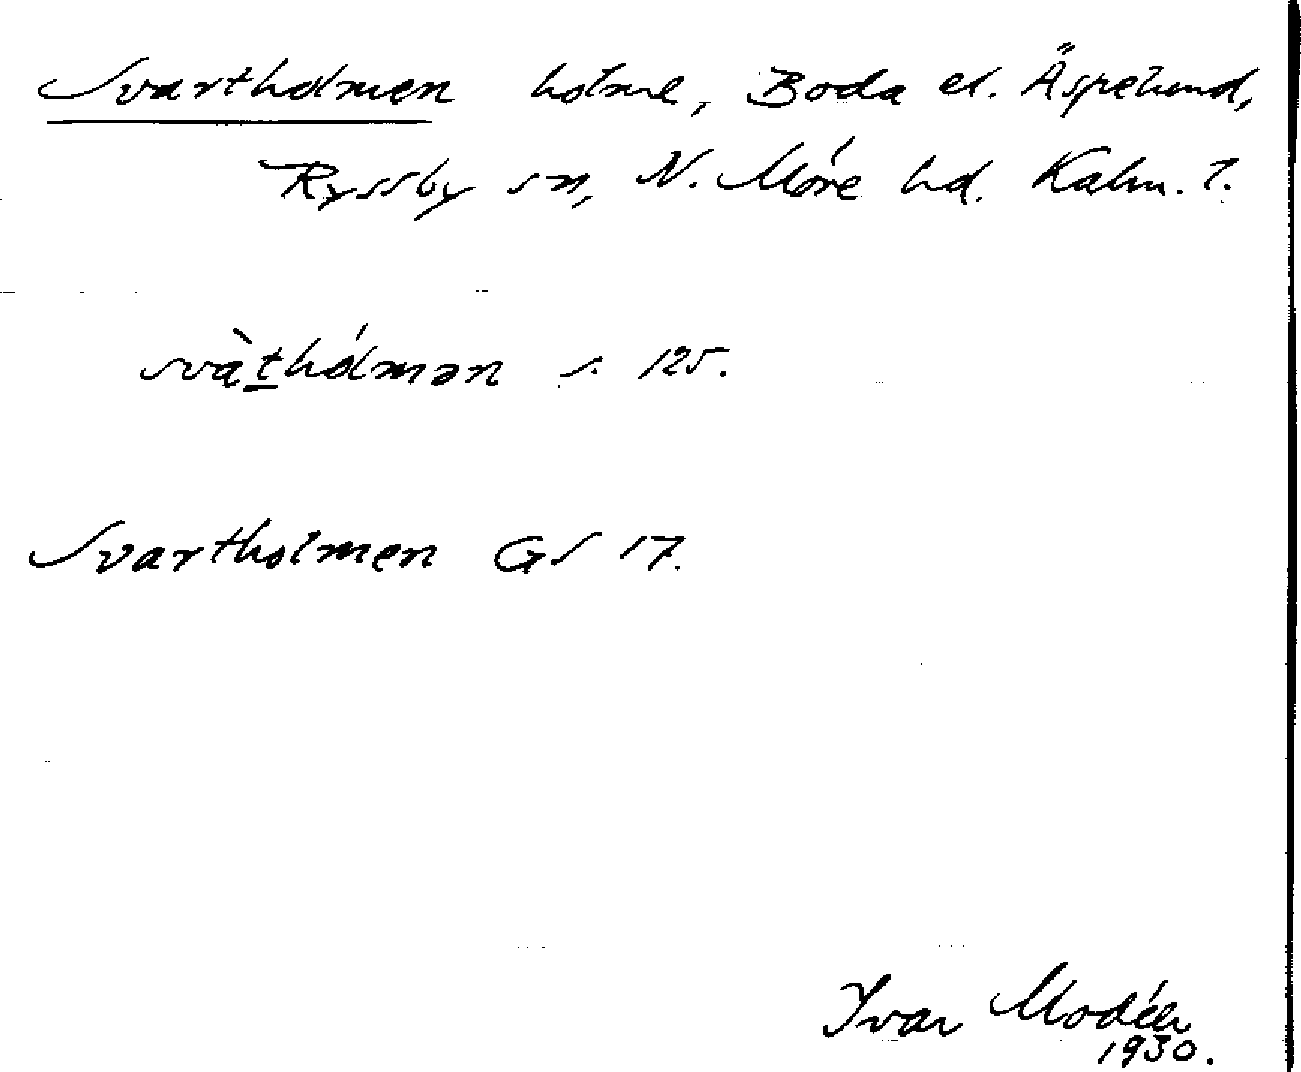 Svartholmen holme, Boda el. Äspelund,
Ryssby sn, N. Möre hd. Kalm. l.
svàthólmən s. 125.
Svartholmen GS 17.
Ivar Modéer
1930.